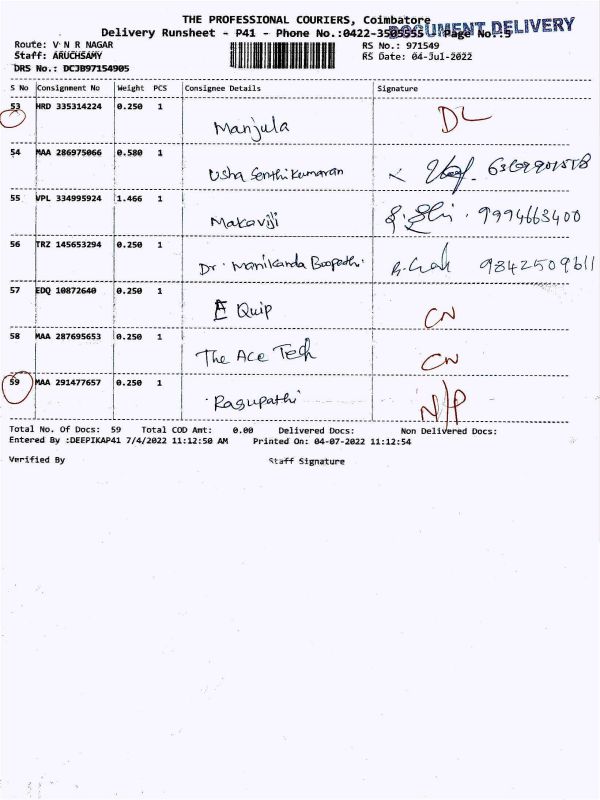 THE PROFESSIONAL COURIERS, Coimbatore
DOCUMENT DELIVERY
Delivery Runsheet - P41 - Phone No.:0422-3505555 Page No.:5
Route: V N R NAGAR RS No.: 971549
Staff: ARUCHSAMY RS Date: 04-Jul-2022
DRS No.: DCJB97154905
S No Consignment No Weight PCS Consignee Details Signature
53 HRD 335314224 0.250 1 Manjula DL
54 MAA 286975066 0.580 1 Usha Senthikumaran
55 VPL 334995924 1.466 1 Makaviji 9994663400
56 TRZ 145653294 0.250 1 Dr. Manikanda Boopathi 9842509611
57 EDQ 10872640 0.250 1 E Quip CN
58 MAA 287695653 0.250 1 The Ace Tech CN
59 MAA 291477657 0.250 1 Ragupathi N/P
Total No. Of Docs: 59 Total COD Amt: 0.00 Delivered Docs: Non Delivered Docs:
Entered By :DEEPIKAP41 7/4/2022 11:12:50 AM Printed On: 04-07-2022 11:12:54
Verified By Staff Signature